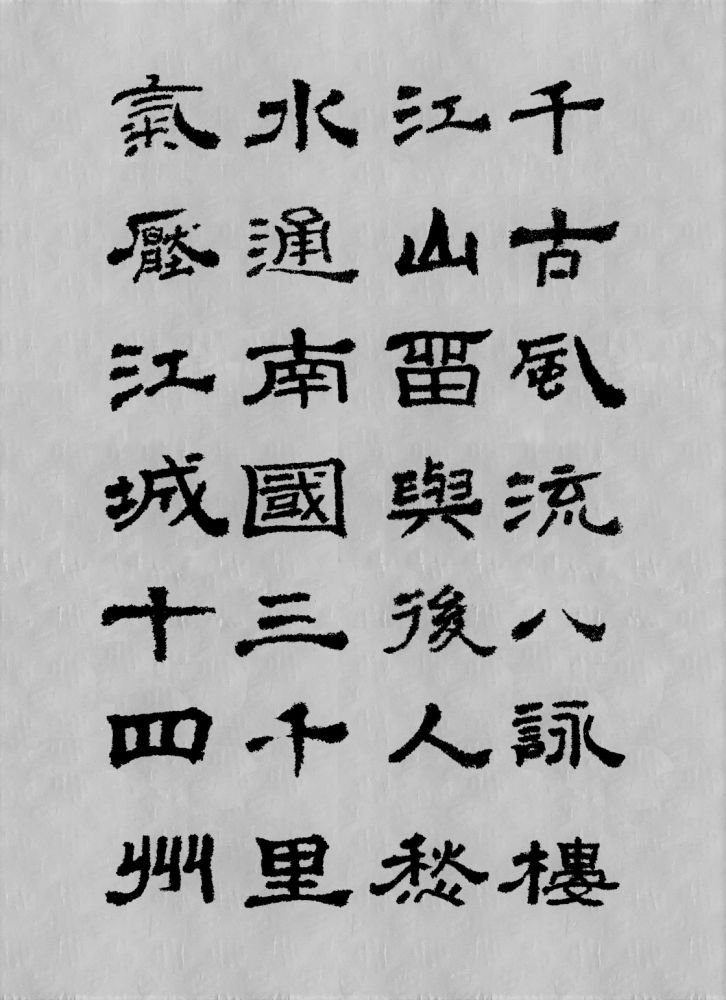 千古風流八詠樓
江山留與後人愁
水通南國三千里
氣壓江城十四州